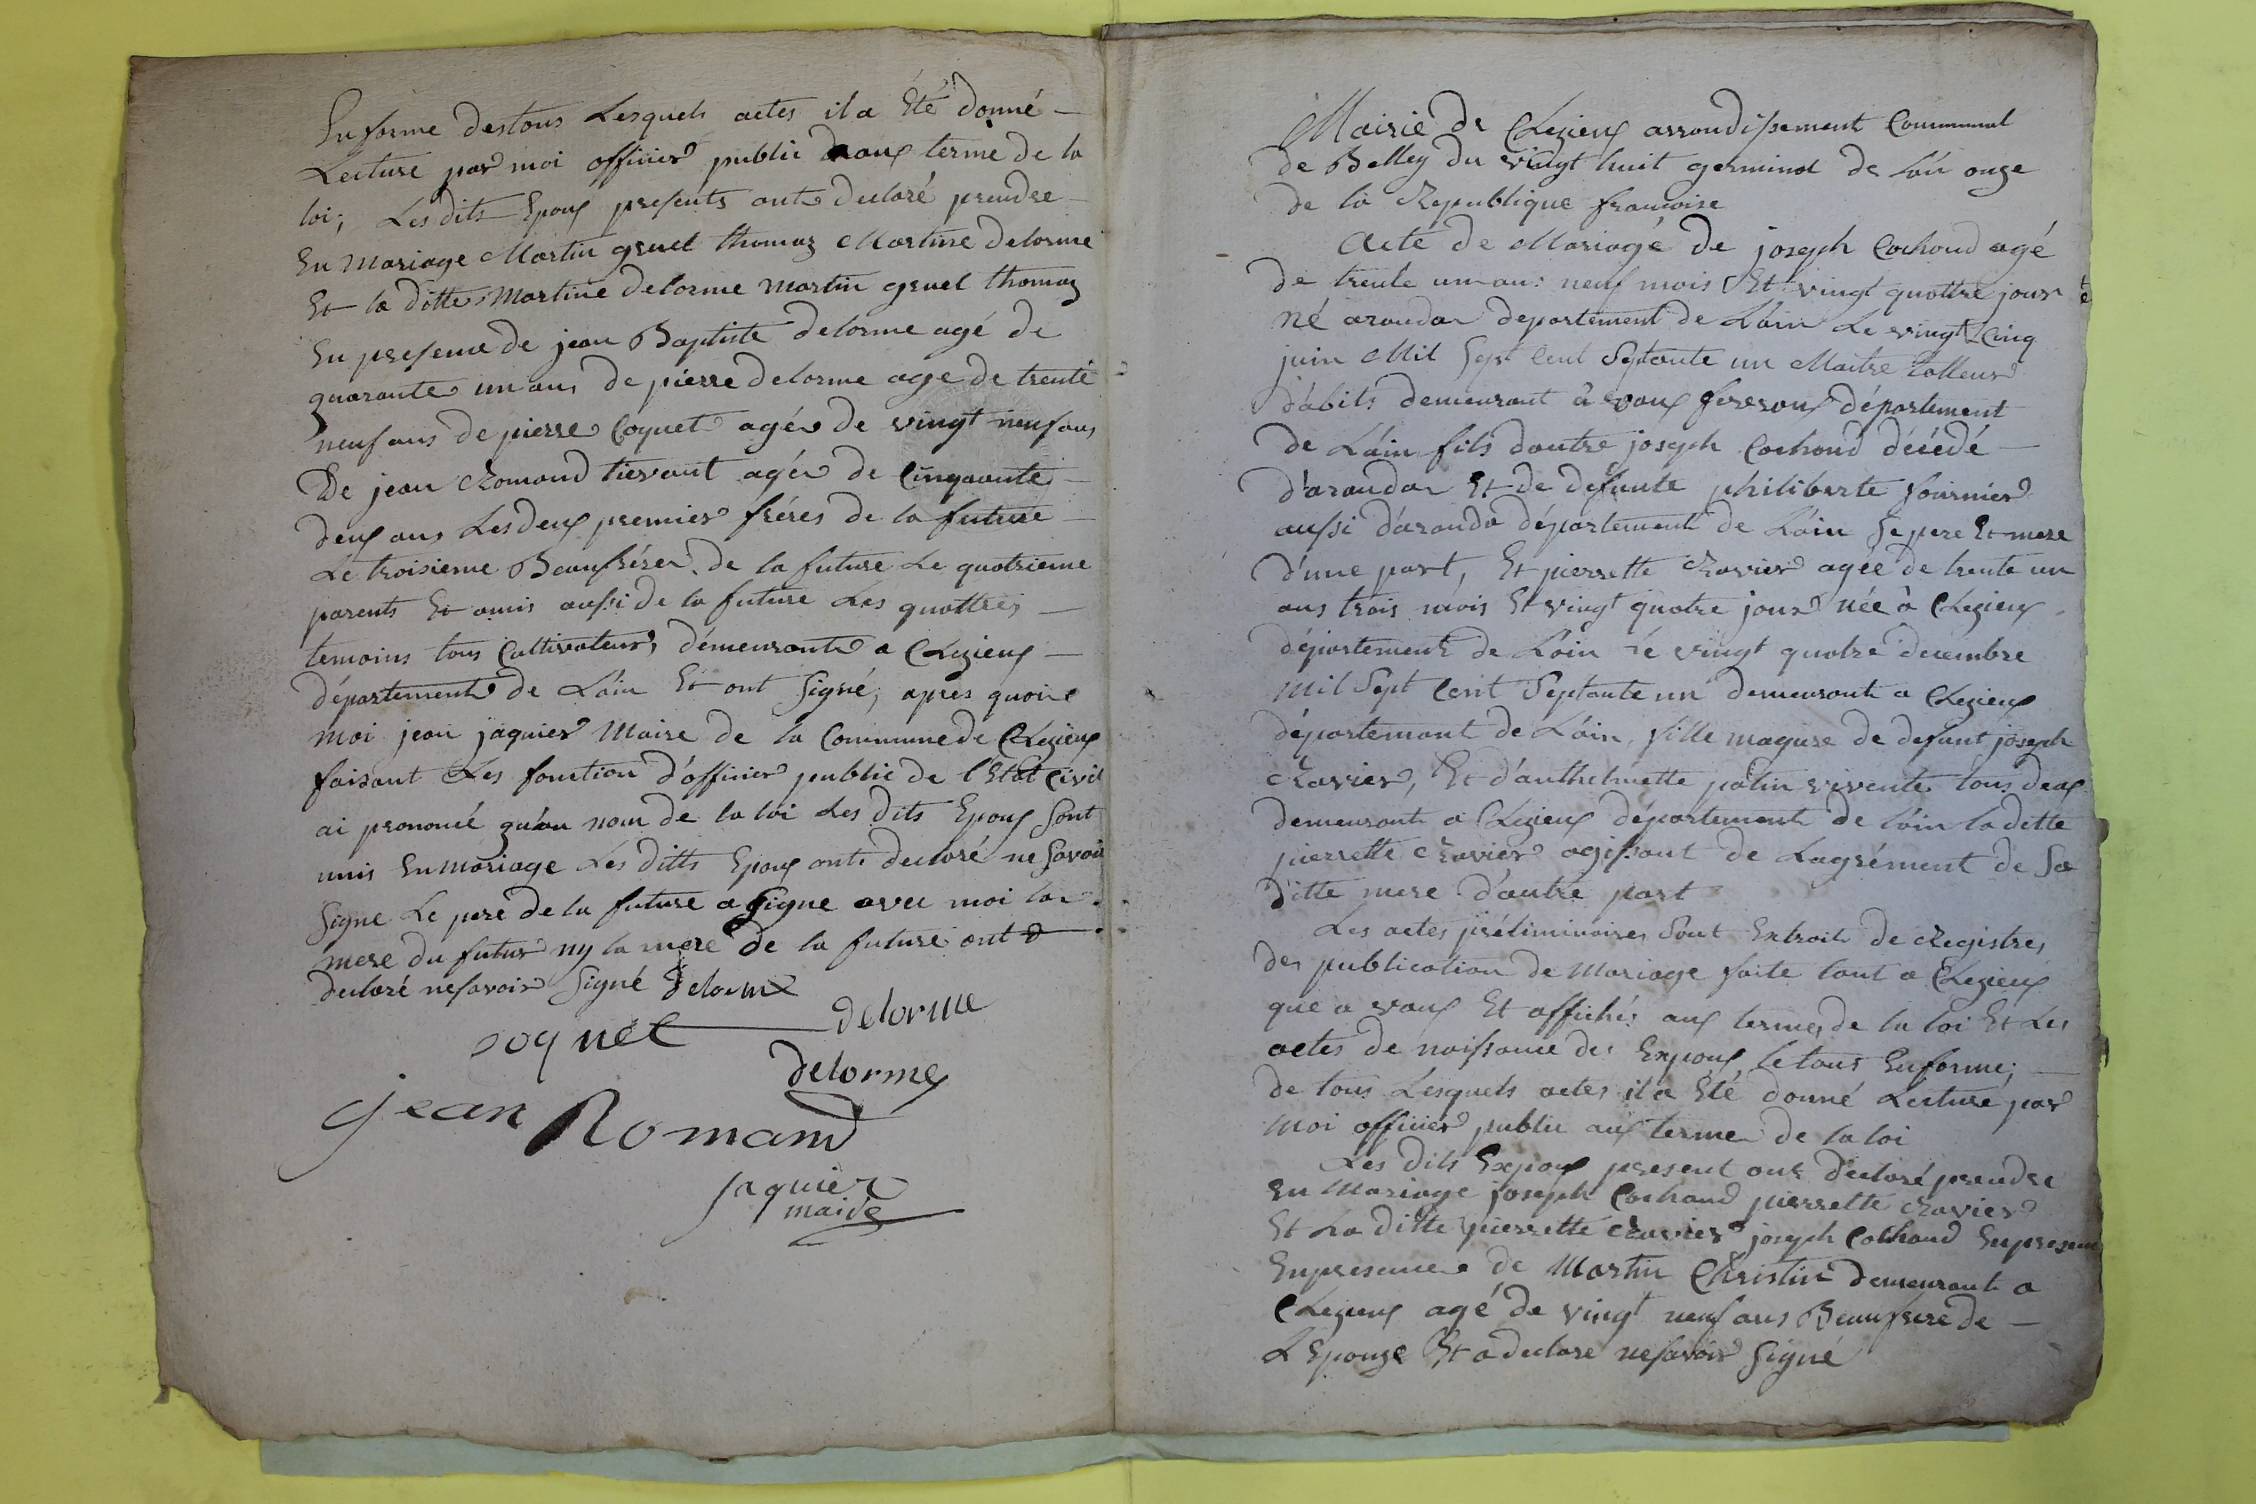 En forme destous Lesquels actes il a Eté donné —
Lecture par moi officier public aux terme de la
loi; Les dits Epoux presents ont declaré prendre —
En mariage Martin gruel thomaz Martine delorme
Et la ditte Martine delorme martin gruel thomaz
En presence de jean Baptiste delorme agé de
quarante un ans de pierre delorme age de trente
neuf ans de pierre Coquet agée de vingt neuf ans
De jean Romand tievant agée de Cinquante —
deux ans Les deux premier fréres de la future —
Le troisieme Beaufrére de la future Le quatrieme
parents Et amis aussi de la future Les quattres —
temoins tous Cultivateurs demeurants a Clezieux —
département de Láin Et ont Signé, apres quoi
moi jean jaquier Maire de la Commune de Clezieux
faisant Les fonction d'officier public de l'Etat Civil
ai prononcé qu'au nom de la loi Les dits Epoux Sont
unis En mariage Les ditts Epoux ont declaré ne Savoir
Signe Le pere de la future a Signe avec moi la
mere du futur ny la mere de la future ont
declaré ne savoir Signé delorme
coquet delorme
delorme
jean Romand
jaquier
maire
Mairie de Clezieux arrondissement Communal
de Belley du vingt huit germinal de lán onze
de la Republique francoise
Acté de Mariagé de joseph Cochoud agé
de trente un ans neuf mois Et vingt quattre jour
né arandas departement de Láin Le vingt Cinq
juin Mil Sept Cent Septante un Maitre talleur
d'abits demeurant à vaux fevroux département
de Láin fils dautre joseph Cochoud décédé —
d'arandas Et de defunte philiberte fournier
aussi d'aranda département de Láin Se pere Et mere
d'une part, Et pierrette Ravier agée de trente un
ans trois mois Et vingt quatre jour née à Clezieux
département de Láin le vingt quatre decembre
mil Sept Cent Septante un demeurante a Clezieux
département de Láin, fille majure de defunt joseph
Ravier, Et d'anthelmette patin vivente tous deux
demeurant a Clezieux département de láin la ditte
pierrette Ravier agissant de Lagrément de Sa
ditte mere d'autre part
Les actes préliminaires Sont Extrait de Registres
des publication de Mariage faite tant a Clezieux
que a vaux Et affichés aux termes de la loi Et Les
actes de naissance des Expoux, le tous En forme; —
de tous Lesquels actes il a Eté donné Lecture par
Moi officier public aux termes de la loi
Les dits Expoux present ont declaré prendre
En Mariage joseph Cochaud pierrette Ravier
Et La ditte pierrette Ravier joseph Cochaud En presence
En presence de Martin Christin demeurant a
Clezieux agé de vingt neuf ans Beaufrere de —
L'Epouze Et a declare ne savoir Signé